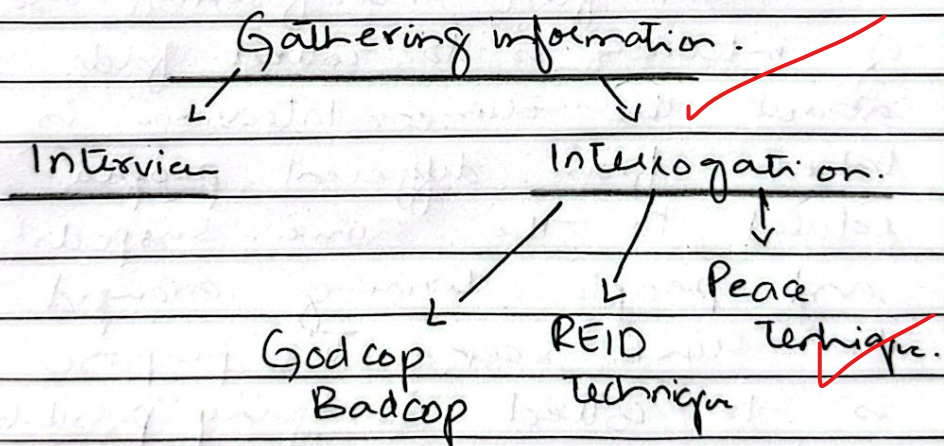 Gathering information.
Interview
Interrogation.
Peace
Godcop
REID
Technique.
Badcop
Technique